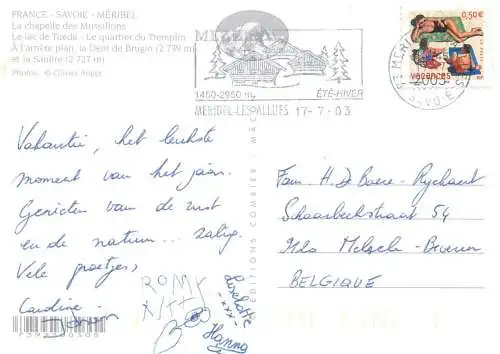 FRANCE - SAVOIE - MÉRIBEL
La chapelle des Mussillons
Le lac de Tuéda - Le quartier du Tremplin
À l'arrière plan, la Dent de Burgin (2 739 m)
et la Saulire (2 737 m)
Photos : © Olivier Anger
1450-2950 m
ÉTÉ-HIVER
MERIBEL-LES-ALLUES 17-7-03
0,50€
VACANCES
2003
SAVOIE
Vakantie, het leukste
moment van het jaar.
Genieten van de rust
en de natuur... zalig.
Vele groetjes,
Caroline
ROMY
Liselotte
xxx
Hanna
Fam H. De Baere-Rychaert
Schaarbeekstraat 54
9120 Melsele-Beveren
BELGIQUE
EDITIONS COMBIER MÂC